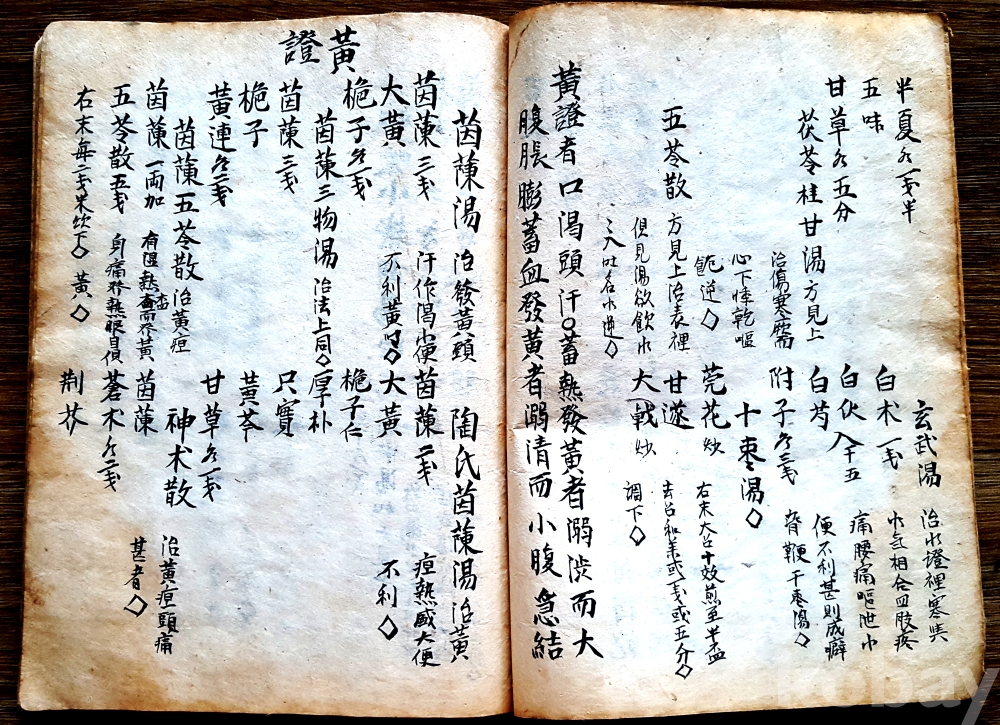 半夏各一戔半
五味
甘草各五分
茯苓桂甘湯方見上
治傷寒
心下悸乾嘔
五苓散 方見上治表裡
俱見渴欲飮水
入吐名水逆◇
玄武湯 治水證裡寒
水气相合四肢疼
痛腰痛嘔泄小
便不利甚則成癖
白朮一戔
白伏
白芍
附子各三戔
十棗湯◇
芫花炒
甘遂
大戟炒
右末大召十枚煎至半盃
去召和末或一戔或五分◇
調下◇
黃證者口渴頭汗○蓄熱發黃者溺澁而大
腹脹膨蓄血發黃者溺清而小腹急結
黃證
茵蔯湯 治發黃頭
汗作渴小便
不利黃◇
茵蔯三戔
大黃
梔子各一戔
茵蔯三物湯 治法上同◇
茵蔯三戔
梔子
黃連各二戔
茵蔯五苓散 治黃疸
有溫熱 而發黃
身痛發熱眼目俱
黃◇
茵蔯一兩加
五苓散五戔
右末每二戔米飮下◇
陶氏茵蔯湯 治黃
疸熱盛大便
不利◇
茵蔯二戔
大黃
梔子仁
厚朴
只實
黃芩
甘草各一戔
神朮散 治黃疸頭痛
甚者◇
茵蔯
蒼朮各二戔
荆芥